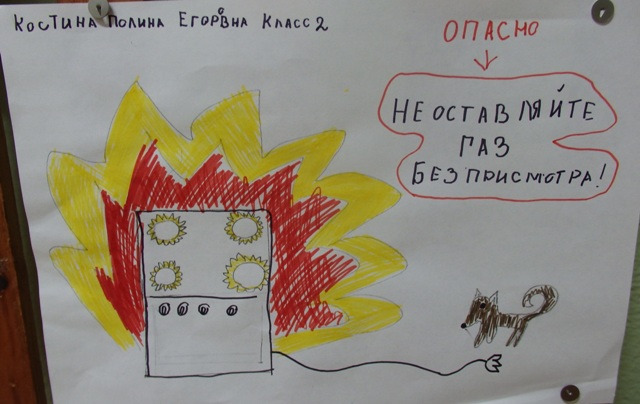 КОСТИНА ПОЛИНА ЕГОРОВНА КЛАСС 2
ОПАСНО
НЕ ОСТАВЛЯЙТЕ
ГАЗ
БЕЗ ПРИСМОТРА!